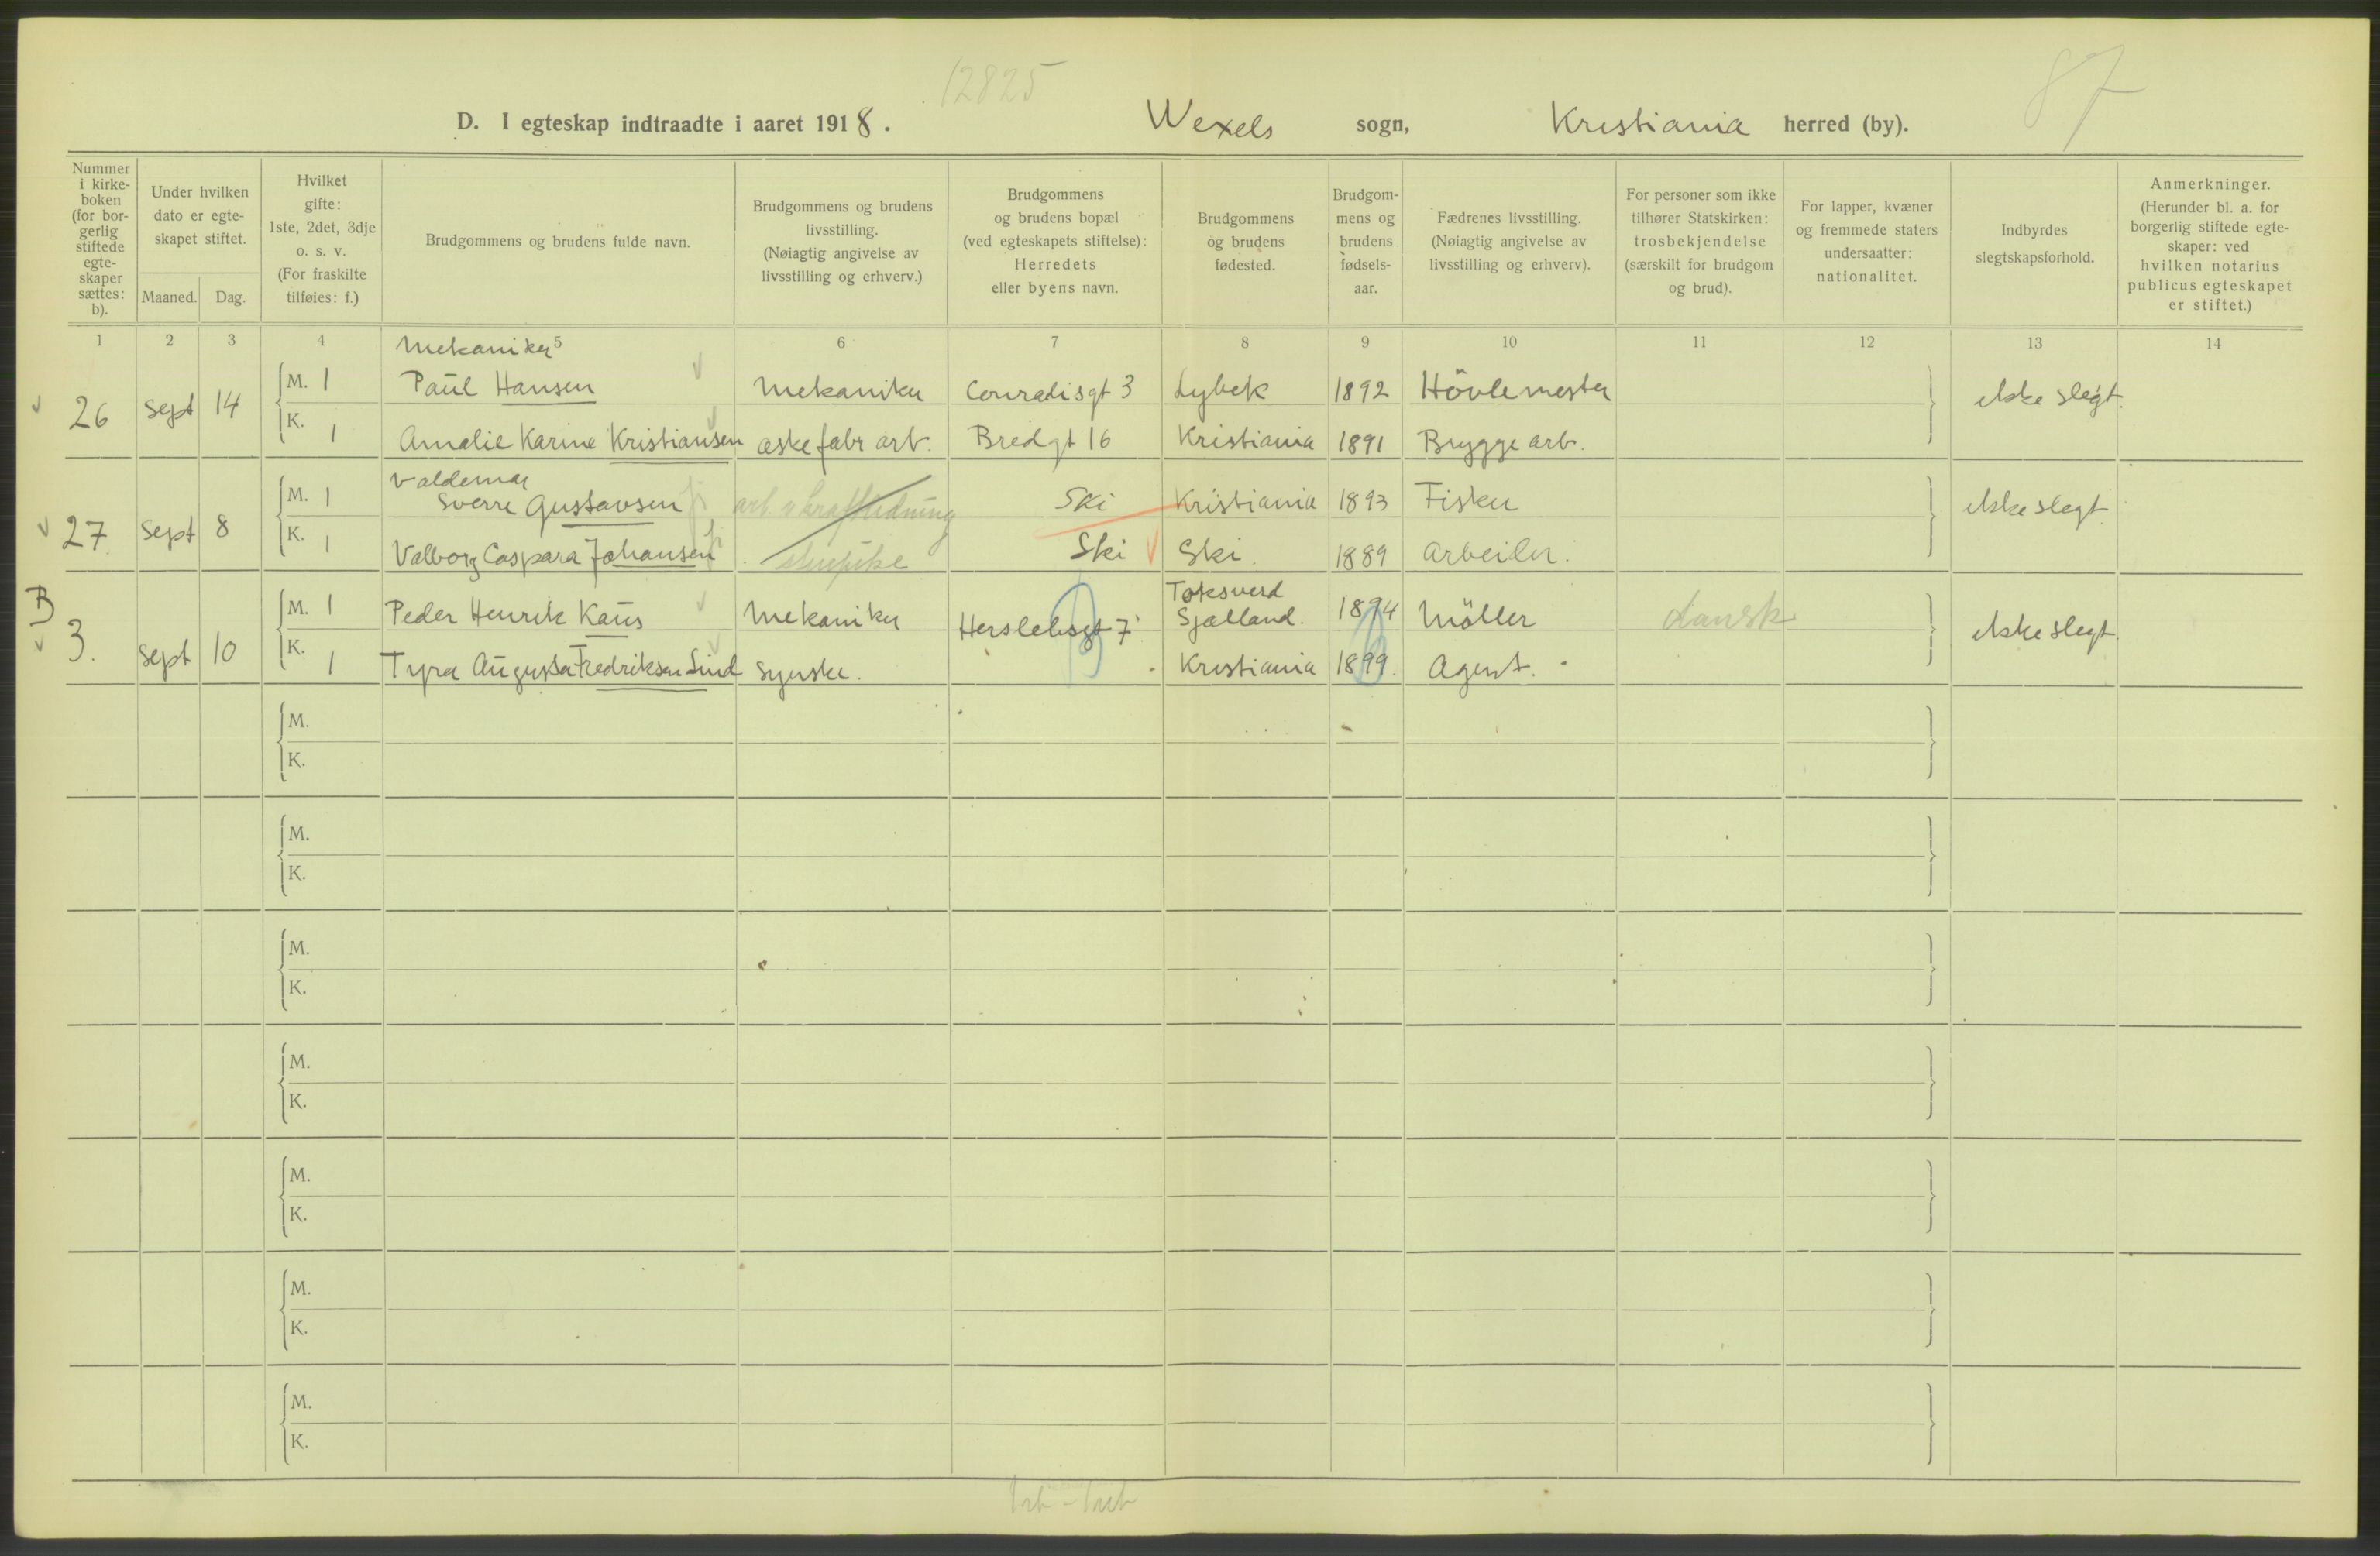 12825
87
D. I egteskap indtraadte i aaret 1918. Wexels sogn, Kristiania herred (by).
Nummer i kirke-boken (for bor-gerlig stiftede egte-skaper sættes: b).
Under hvilken dato er egte-skapet stiftet.
Maaned. Dag.
Hvilket gifte: 1ste, 2det, 3dje o. s. v. (For fraskilte tilføies: f.)
Brudgommens og brudens fulde navn.
Brudgommens og brudens livsstilling. (Nøiagtig angivelse av livsstilling og erhverv.)
Brudgommens og brudens bopæl (ved egteskapets stiftelse): Herredets eller byens navn.
Brudgommens og brudens fødested.
Brudgom-mens og brudens fødsels-aar.
Fædrenes livsstilling. (Nøiagtig angivelse av livsstilling og erhverv).
For personer som ikke tilhører Statskirken: trosbekjendelse (særskilt for brudgom og brud).
For lapper, kvæner og fremmede staters undersaatter: nationalitet.
Indbyrdes slegtskapsforhold.
Anmerkninger. (Herunder bl. a. for borgerlig stiftede egte-skaper: ved hvilken notarius publicus egteskapet er stiftet.)
1 2 3 4 5 6 7 8 9 10 11 12 13 14
Mekaniker
26 Sept 14 M. 1 Paul Hansen Mekaniker Conradisgt 3 Lybek 1892 Hövlemester ikke slegt.
K. 1 Amalie Karine Kristiansen æskefabr arb. Bredgt 16 Kristiania 1891 Brygge arb.
Valdemar
27. Sept 8 M. 1 Sverre Gustavsen arb. v kraftledning Ski Kristiania 1893 Fisker ikke slegt.
K. 1 Valborg Caspara Johansen Ski Ski. 1889 Arbeider.
B
Toksverd
3. Sept 10 M. 1 Peder Henrik Kaus Mekaniker Herslebsgt 7 Sjælland. 1894 Möller dansk ikke slegt.
K. 1 Tyra Augusta Fredriksen Lind Syerske. Kristiania 1899. Agent.
M.
K.
M.
K.
M.
K.
M.
K.
M.
K.
M.
K.
M.
K.